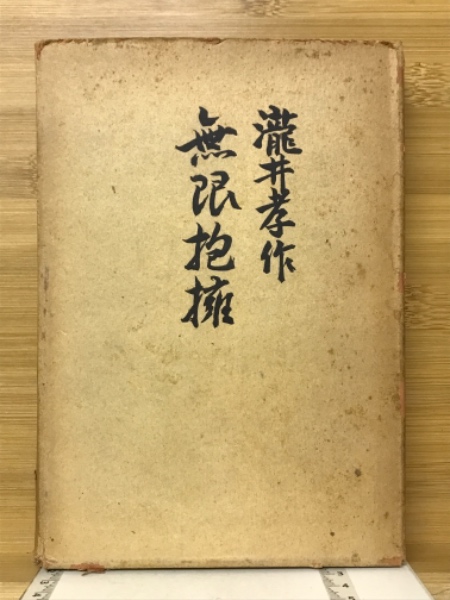 瀧井孝作
無限抱擁